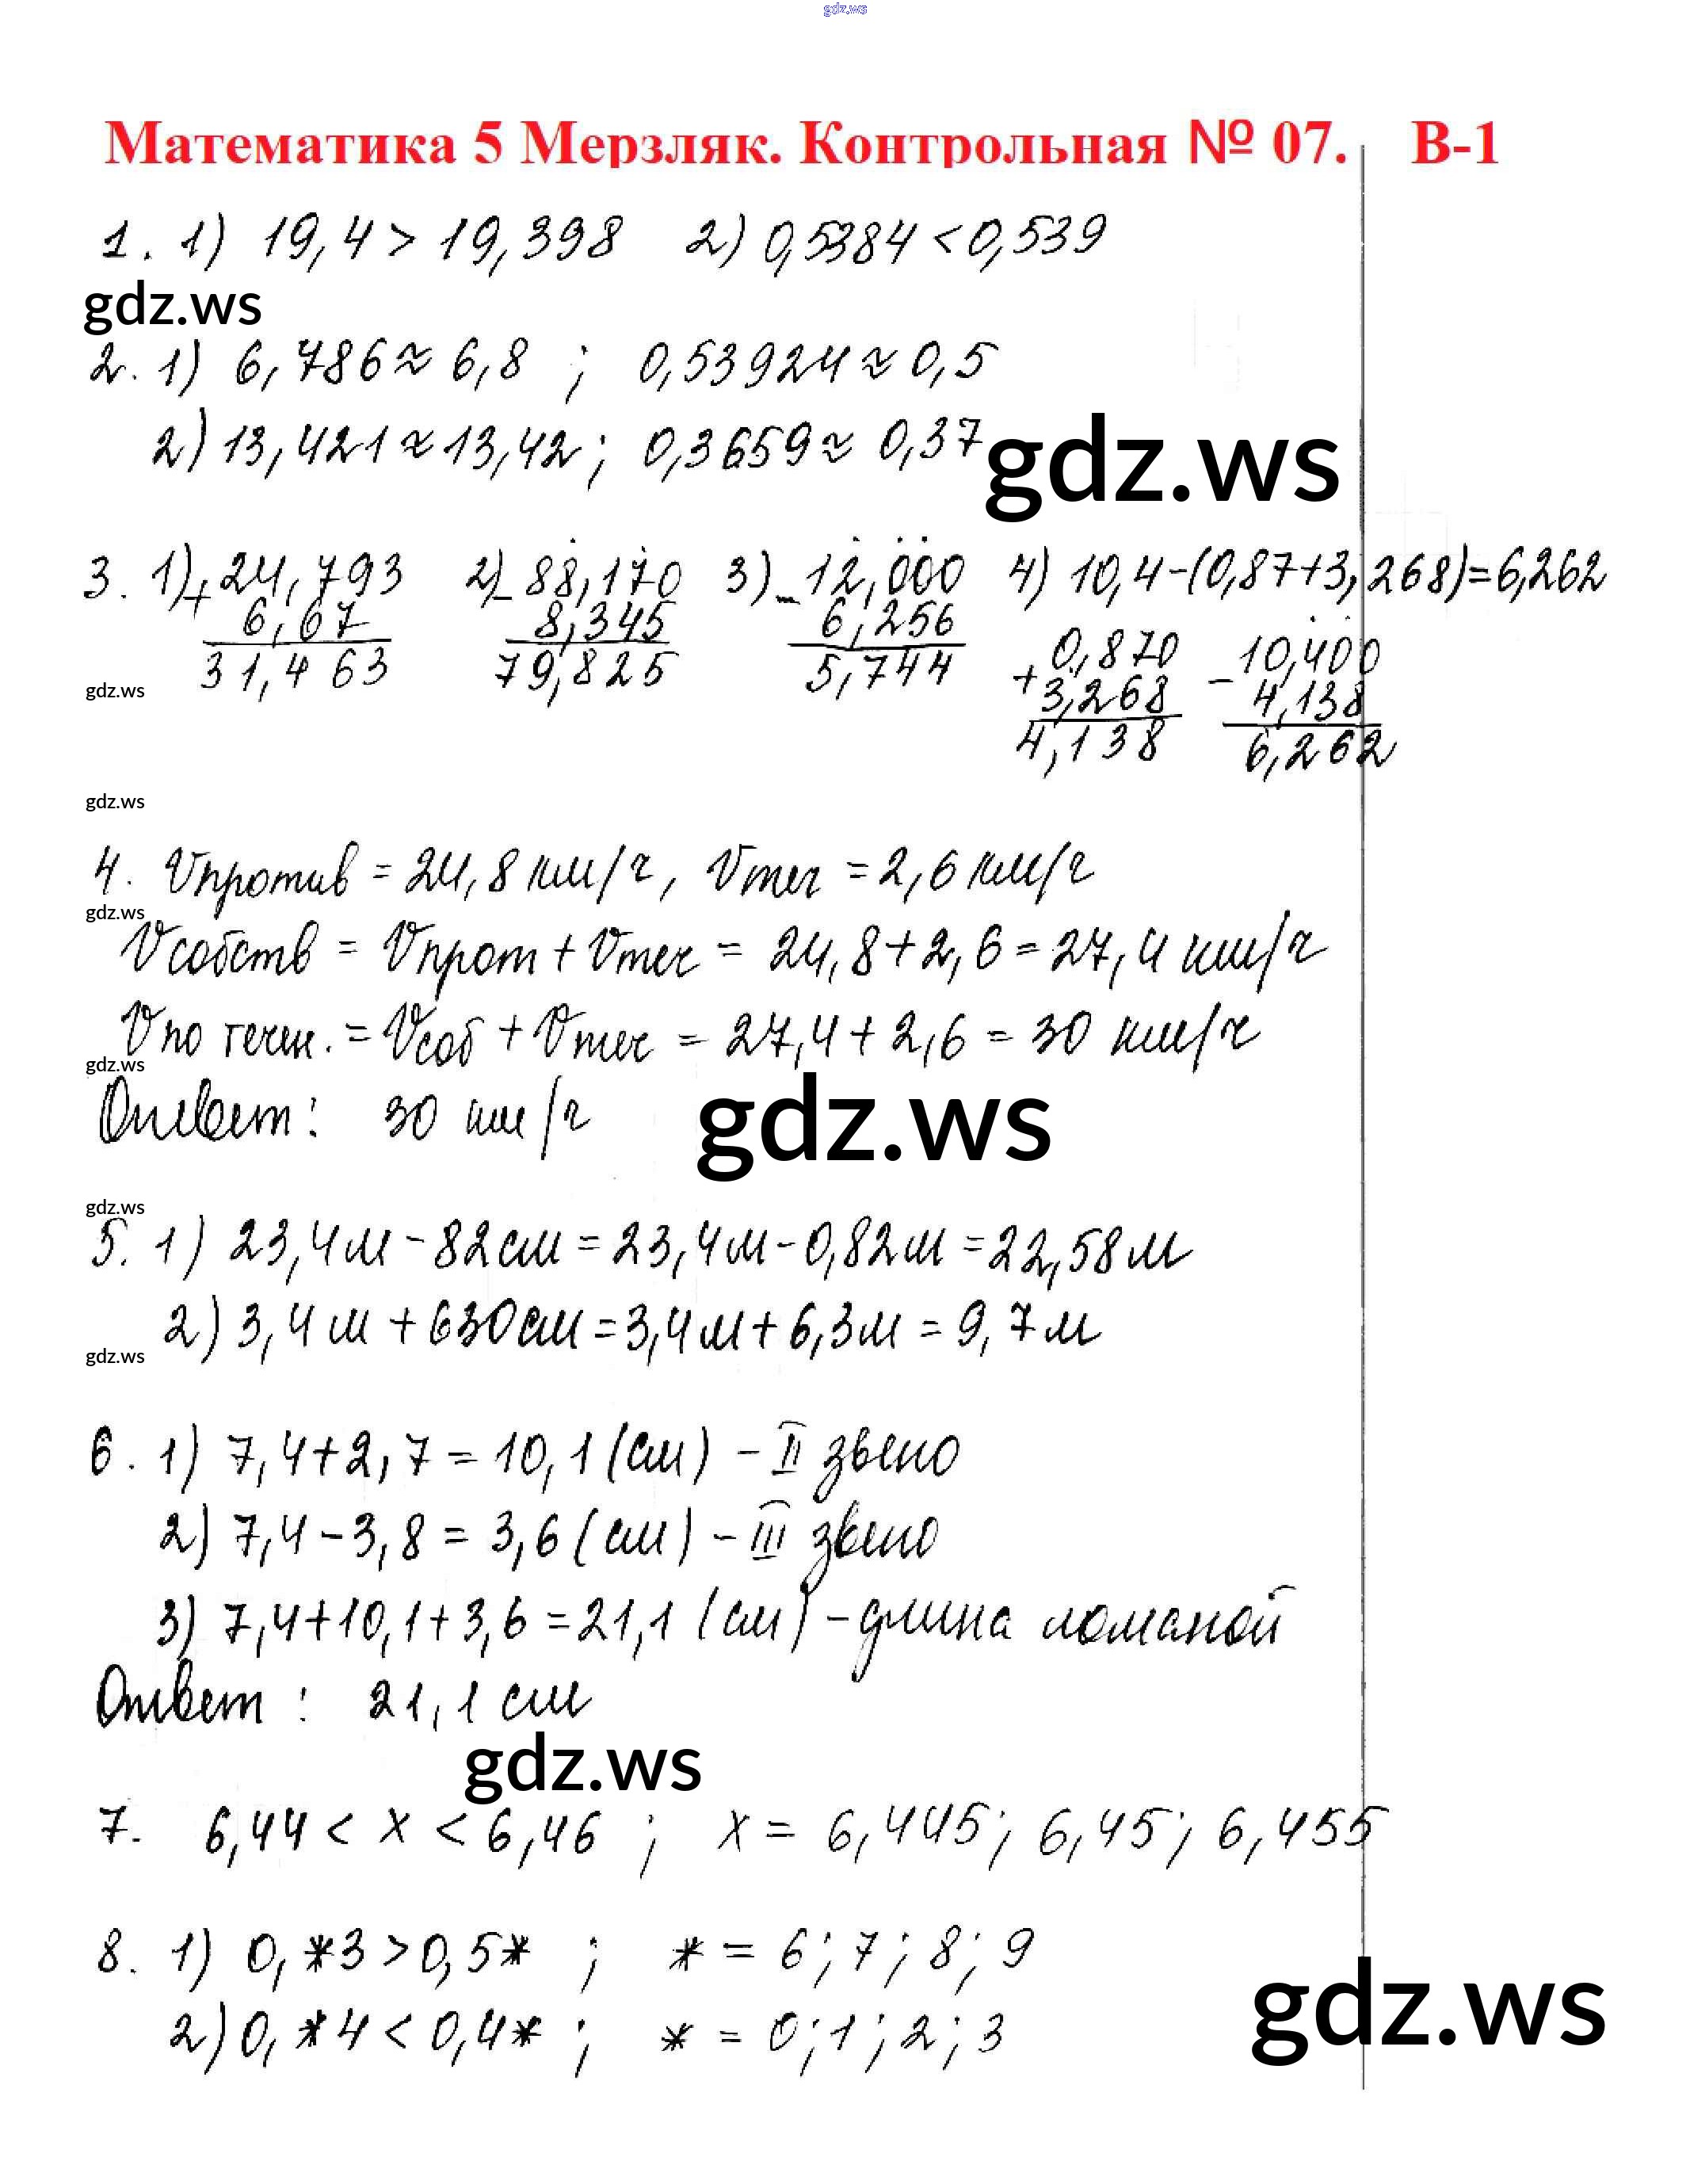 gdz.ws
Математика 5 Мерзляк. Контрольная № 07. В-1
1. 1) 19,4 > 19,398 2) 0,5384 < 0,539
gdz.ws
2. 1) 6,786 ≈ 6,8 ; 0,53924 ≈ 0,5
2) 13,421 ≈ 13,42 ; 0,3659 ≈ 0,37
gdz.ws
3. 1) + 24,793 2) - 88,170 3) - 12,000 4) 10,4 - (0,87 + 3,268) = 6,262
6,67 8,345 6,256 + 0,870 - 10,400
31,463 79,825 5,744 3,268 4,138
gdz.ws
4,138 6,262
gdz.ws
4. Vпротив = 24,8 км/ч, Vтеч = 2,6 км/ч
gdz.ws
Vсобств = Vпрот + Vтеч = 24,8 + 2,6 = 27,4 км/ч
Vпо течен. = Vсоб + Vтеч = 27,4 + 2,6 = 30 км/ч
gdz.ws
Ответ: 30 км/ч
gdz.ws
gdz.ws
5. 1) 23,4 м - 82 см = 23,4 м - 0,82 м = 22,58 м
2) 3,4 м + 630 см = 3,4 м + 6,3 м = 9,7 м
gdz.ws
6. 1) 7,4 + 2,7 = 10,1 (см) - II звено
2) 7,4 - 3,8 = 3,6 (см) - III звено
3) 7,4 + 10,1 + 3,6 = 21,1 (см) - длина ломаной
Ответ : 21,1 см
gdz.ws
7. 6,44 < x < 6,46 ; x = 6,445; 6,45; 6,455
8. 1) 0,*3 > 0,5* ; * = 6; 7; 8; 9
2) 0,*4 < 0,4* ; * = 0; 1; 2; 3
gdz.ws